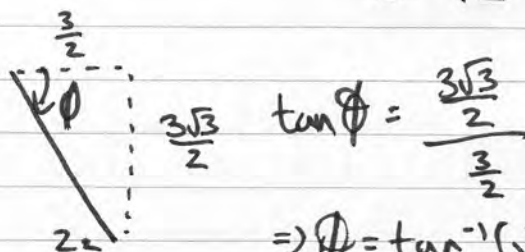 3/2
ϕ
3√3/2
tan ϕ = (3√3/2)/(3/2)
z₂
=> ϕ = tan⁻¹(